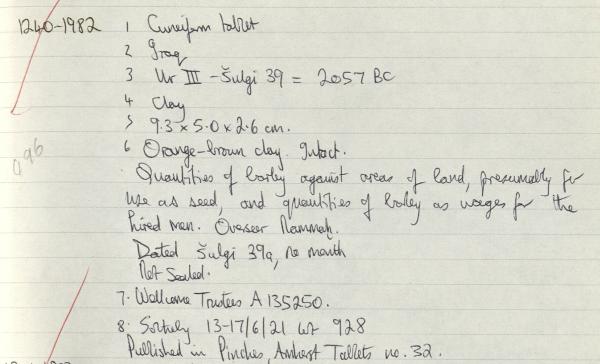 1240-1982 1 Cuneiform tablet
2 Iraq
3 Ur III - Šulgi 39 = 2057 BC
4 Clay
5 9.3 x 5.0 x 2.6 cm.
6 Orange-brown clay. Intact.
Quantities of barley against areas of land, presumably for
use as seed, and quantities of barley as wages for the
hired men. Overseer Nammah.
Dated Šulgi 39a, no month
Not Sealed.
7. Wellcome Trustees A 135250.
8. Sotheby 13-17/6/21 lot 928
Published in Pinches, Amherst Tablets no. 32.
096